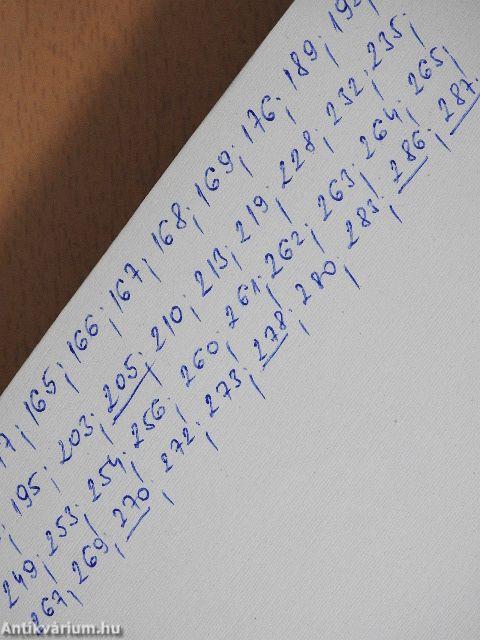 165; 166; 167; 168; 169; 176; 189;
195; 203; 205; 210; 213; 219; 228; 232; 235;
249; 253; 254; 256; 260; 261; 262; 263; 264; 265;
267; 269; 270; 272; 273; 278; 280; 283; 286; 287.
Antikvárium.hu